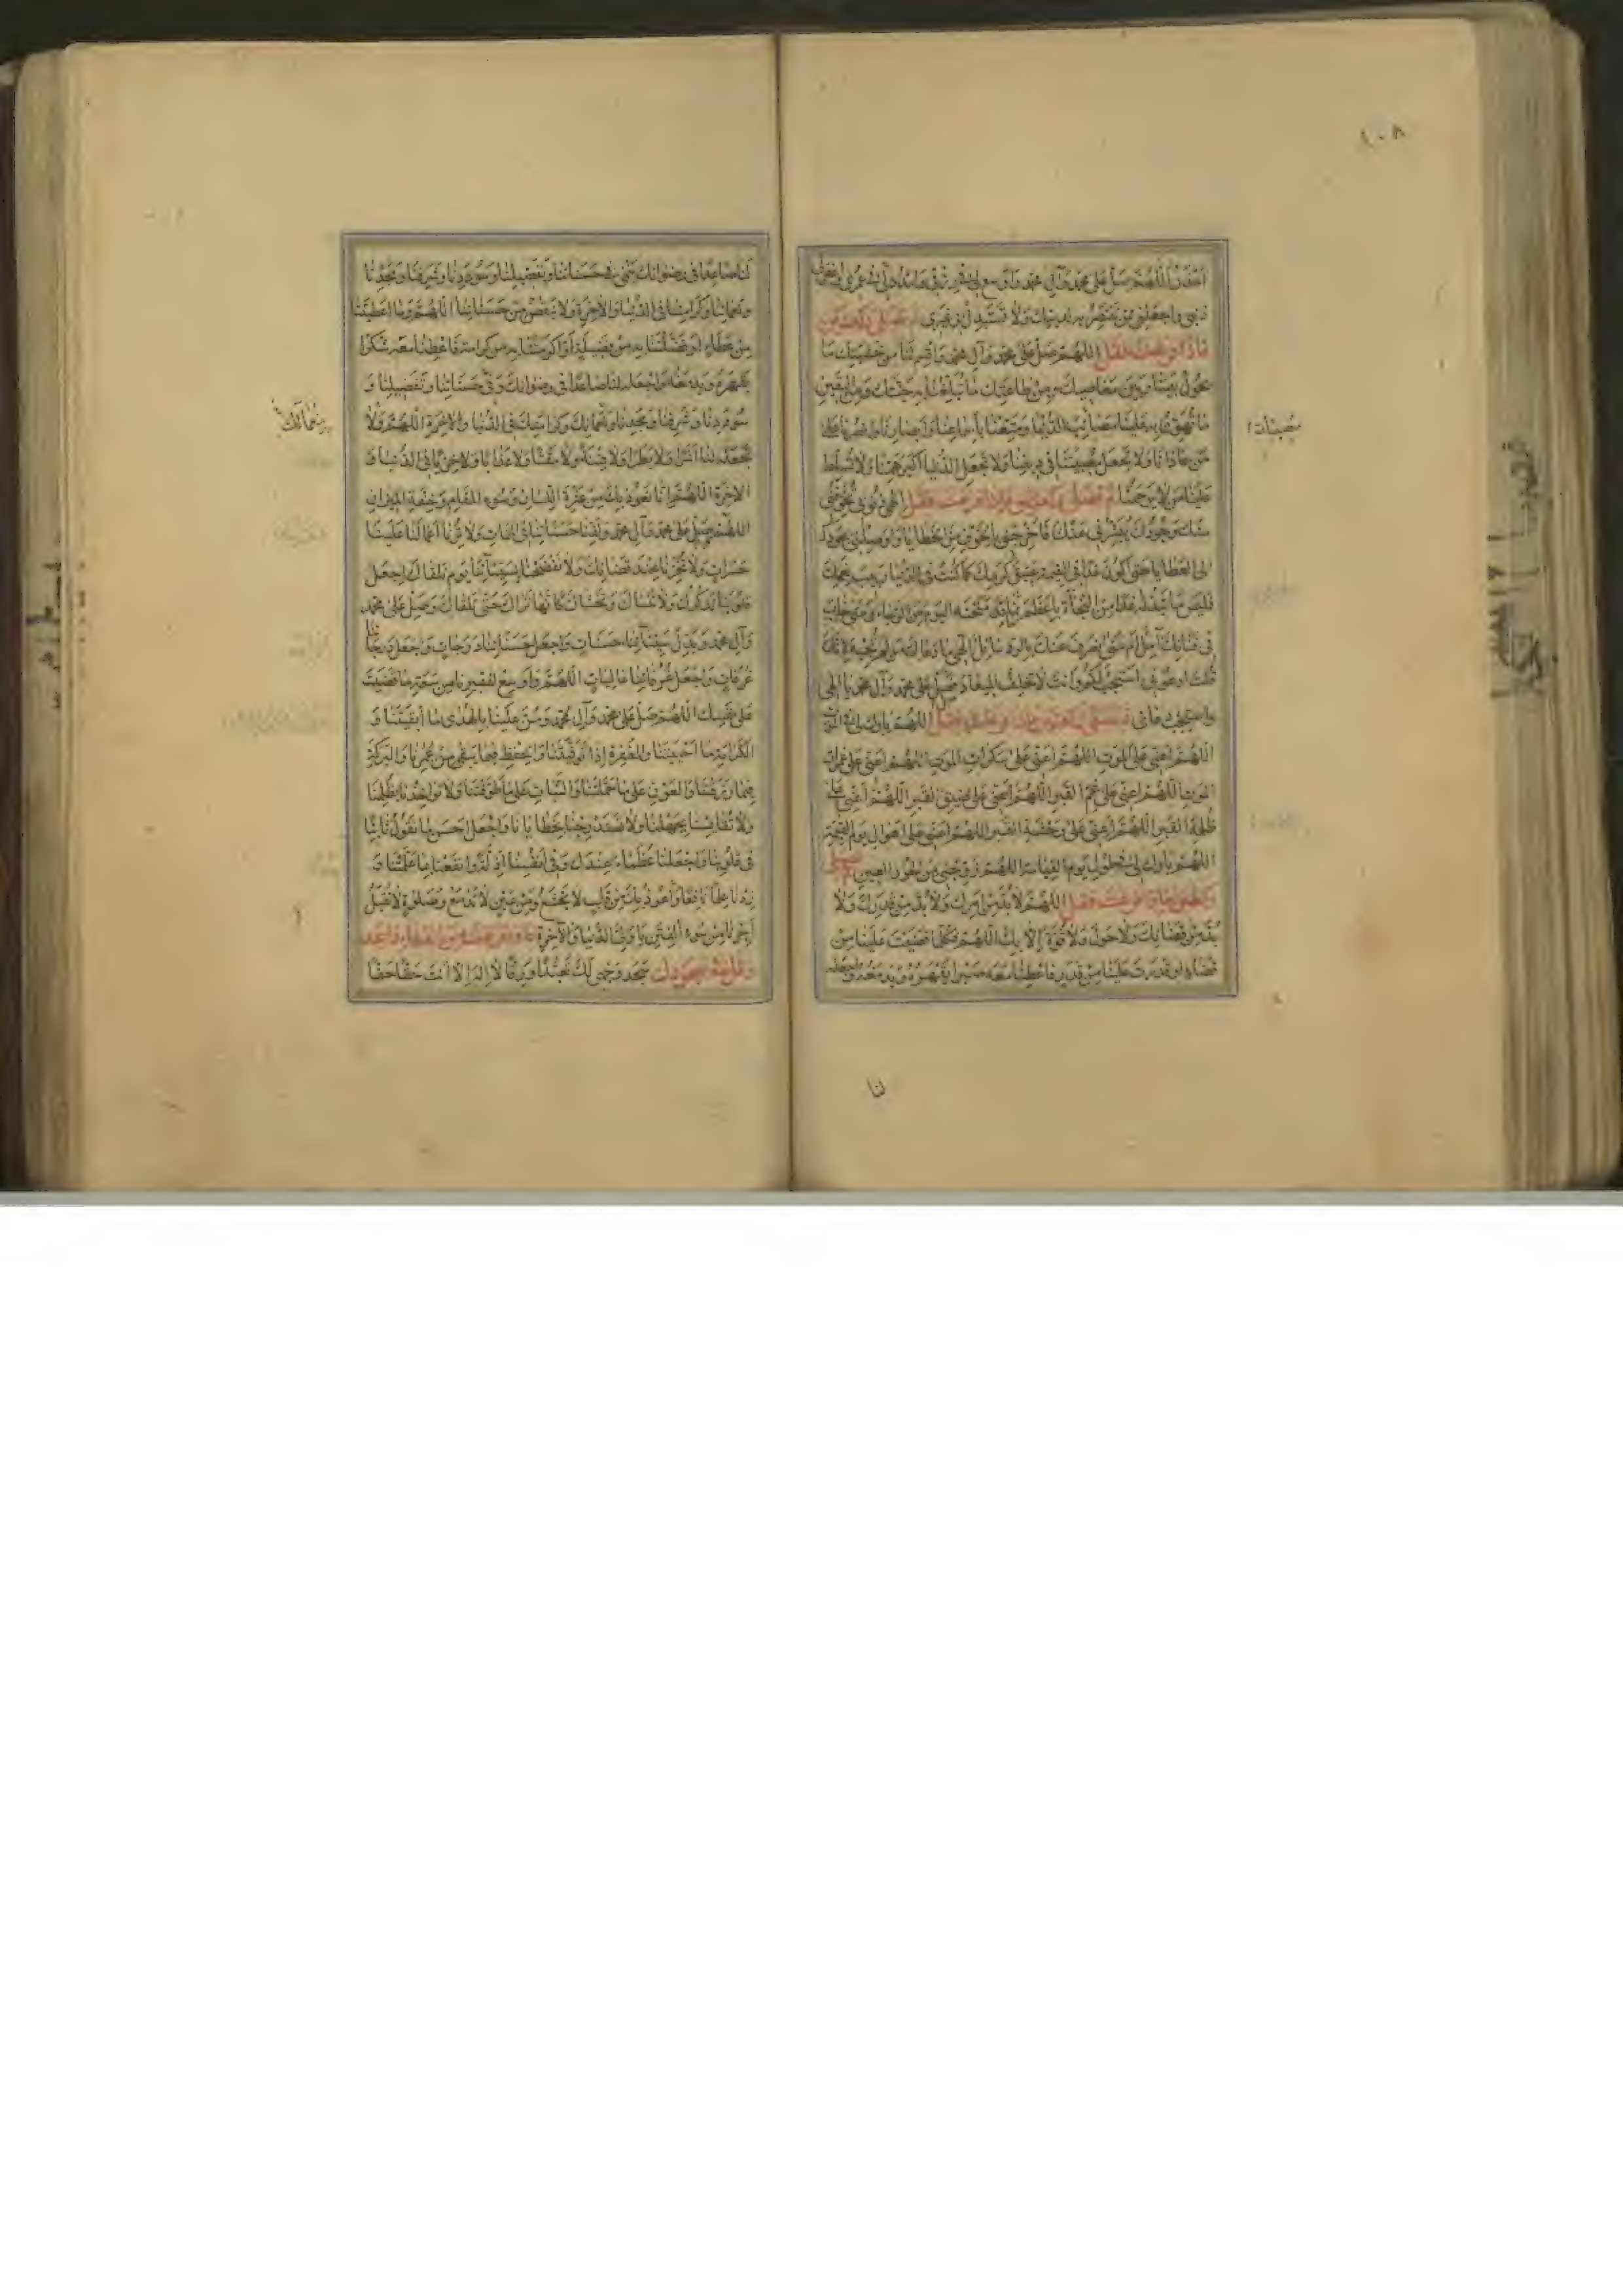 ١٠٨
اللهم صل على محمد وآل محمد واوسع لي في رزقي وامدد لي في عمري واغفر لي
ذنبي واجعلني ممن تنتصر به لدينك ولا تستبدل بي غيري
فاذا فرغت فقل اللهم صل على محمد وآل محمد واقسم لنا من خشيتك ما
يحول بيننا وبين معاصيك ومن طاعتك ما تبلغنا به جنتك ومن اليقين
ما تهون به علينا مصائب الدنيا ومتعنا باسماعنا وابصارنا وانصرنا على
من عادانا ولا تجعل مصيبتنا في ديننا ولا تجعل الدنيا اكبر همنا ولا تسلط
علينا من لا يرحمنا ثم تصلي ركعتين فاذا فرغت فقل الهي ذنوبي تخوفني
منك وجودك يبشرني عنك فاخرجني بالخوف من الخطايا واوصلني بجودك
الى العطايا حتى اكون غدا في القيمة عتيق كرمك كما كنت في الدنيا ربيب نعمك
فليس ما تبذله غدا من النجاة باعظم مما قد منحته اليوم من الرجاء ومتى خاب
في فنائك آمل ام متى انصرف عنك بالرد سائل الهي ما دعاك من لم تجبه لانك
قلت ادعوني استجب لكم وانت لا تخلف الميعاد فصل على محمد وآل محمد يا الهي
واستجب دعائي اللهم بارك لي في الموت
اللهم اعني على الموت اللهم اعني على سكرات الموت اللهم اعني على غمرات
الموت اللهم اعني على غم القبر اللهم اعني على ضيق القبر اللهم اعني على
ظلمة القبر اللهم اعني على وحشة القبر اللهم اعني على اهوال يوم القيمة
اللهم بارك لي في طول يوم القيامة اللهم زوجني من الحور العين
فاذا فرغت فقل اللهم لا بد من امرك ولا بد من قدرك ولا
بد من قضائك ولا حول ولا قوة الا بك اللهم فكلما قضيت علينا من
قضاء او قدرت علينا من قدر فاعطنا معه صبرا يقهره ويدمغه واجعله
لنا صاعدا في رضوانك ينمي في حسناتنا وتفضيلنا وسوددنا وشرفنا ومجدنا
ونعمائنا وكرامتنا في الدنيا والاخرة ولا تنقص من حسناتنا اللهم وما اعطيتنا
من عطاء او فضلتنا به من فضيلة او اكرمتنا به من كرامة فاعطنا معه شكرا
يقهره ويدمغه واجعله لنا صاعدا في رضوانك وفي حسناتنا وتفضيلنا و
سوددنا وشرفنا ومجدنا ونعمائك وكرامتك في الدنيا والاخرة اللهم ولا
تجعله لنا اشرا ولا بطرا ولا فتنة ولا مقتا ولا عذابا ولا خزيا في الدنيا و
الاخرة اللهم انا نعوذ بك من عثرة اللسان وسوء المقام وخفة الميزان
اللهم صل على محمد وآل محمد ولقنا حسناتنا في الممات ولا ترنا اعمالنا علينا
حسرات ولا تخزنا عند قضائك ولا تفضحنا بسيئاتنا يوم نلقاك واجعل
قلوبنا تذكرك ولا تنساك وتخشاك كانها تراك حتى تلقاك وصل على محمد
وآل محمد وبدل سيئاتنا حسنات واجعل حسناتنا درجات واجعل درجاتنا
غرفات واجعل غرفاتنا عاليات اللهم واوسع لفقيرنا من سعة ما قضيت
على نفسك اللهم صل على محمد وآل محمد ومن علينا بالهدى ما ابقيتنا و
الكرامة ما احييتنا والمغفرة اذا توفيتنا والحفظ فيما يبقى من عمرنا والبركة
فيما رزقتنا والعون على ما حملتنا والثبات على ما طوقتنا ولا تؤاخذنا بظلمنا
ولا تقايسنا بجهلنا ولا تستدرجنا بخطايانا واجعل احسن ما نقول ثابتا
في قلوبنا واجعلنا عظماء عندك وفي انفسنا اذلة وانفعنا بما علمتنا و
زدنا علما نافعا واعوذ بك من قلب لا يخشع ومن عين لا تدمع وصلوة لا تقبل
اجرنا من سوء الفتن يا ولي الدنيا والاخرة فاذا فرغت من الدعاء فاسجد
وقل في سجودك سجد وجهي لك تعبدا ورقا لا اله الا انت حقا حقا